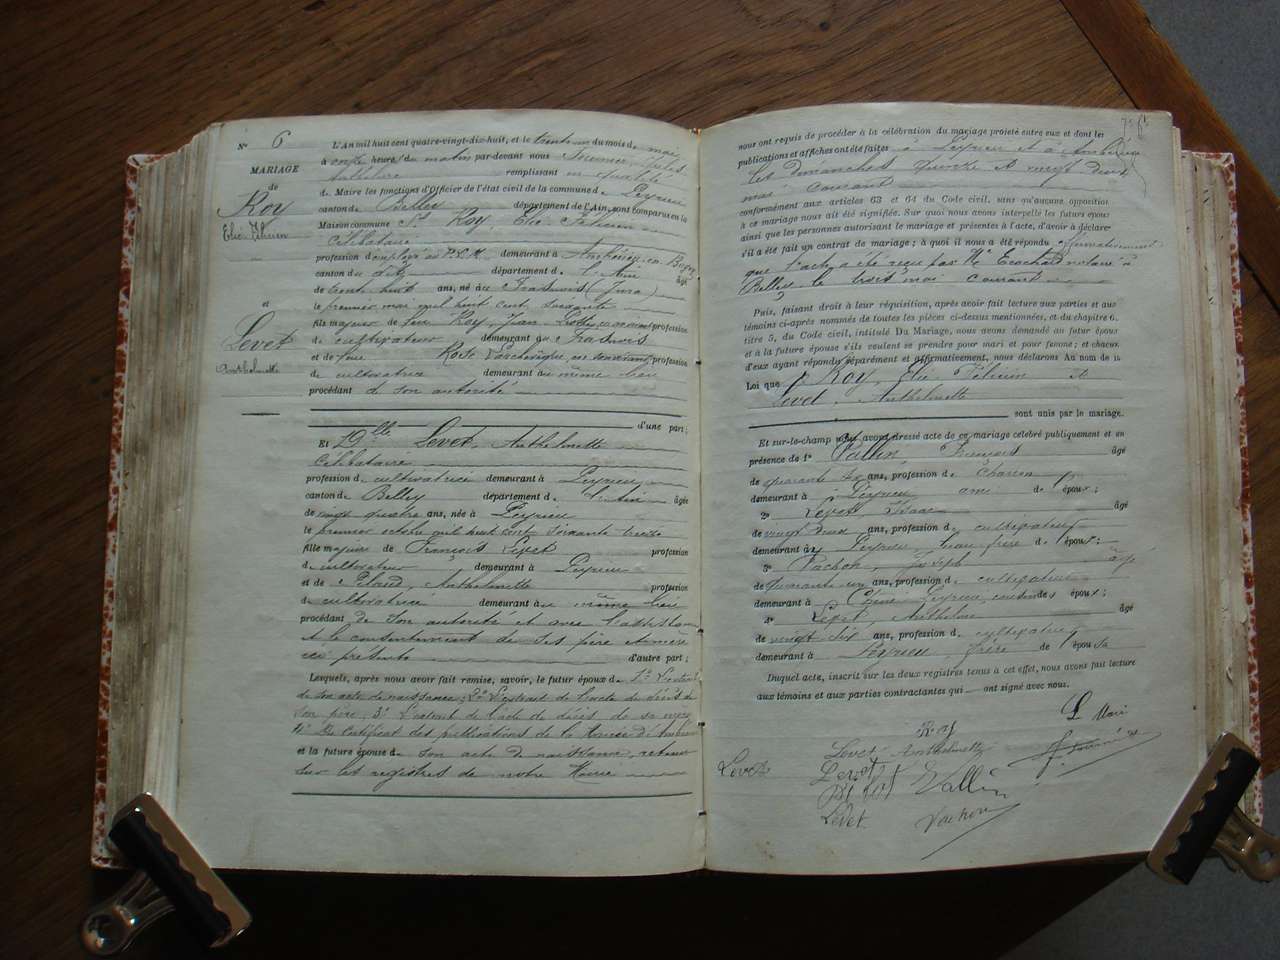 N° 6
MARIAGE
de
Roy
Elie Félicien
et
Levet
Anthelmette
L'An mil huit cent quatre-vingt-dix-huit, et le trente un du mois de mai
à onze heures du matin par-devant nous
Anthelme remplissant en qualité
de Maire les fonctions d'Officier de l'état civil de la commune de Peyrieu
canton de Belley département de l'Ain, sont comparus en la
Maison commune Sr Roy Elie Félicien
Célibataire
profession d'employé au P.L.M. demeurant à Ambérieu en Bugey
canton du dit département de l'Ain âgé
de trente huit ans, né à Frasnois (Jura)
le premier mai mil huit cent soixante
fils majeur de feu Roy, Jean profession
de cultivateur demeurant à Frasnois
et de feue Rose en son vivant profession
de cultivatrice demeurant au même lieu
procédant de son autorité
d'une part;
Et Dlle Levet, Anthelmette
Célibataire
profession de cultivatrice demeurant à Peyrieu
canton de Belley département de l'Ain âgée
de vingt quatre ans, née à Peyrieu
le premier mil huit cent soixante treize
fille majeure de François Levet profession
de cultivateur demeurant à Peyrieu
et de Anthelmette profession
de cultivatrice demeurant au même lieu
procédant de son autorité et avec l'assistance
et le consentement de ses père et mère
ici présents d'autre part;
Lesquels, après nous avoir fait remise, savoir, le futur époux de 1° l'extrait
de son acte de naissance; 2° l'extrait de l'acte de décès de
son père; 3° l'extrait de l'acte de décès de sa mère
4° Le certificat des publications de la Mairie d'Ambérieu
et la future épouse de son acte de naissance,
sur les registres de notre Mairie
nous ont requis de procéder à la célébration du mariage projeté entre eux et dont les
publications et affiches ont été faites à Peyrieu et à Ambérieu
les dimanches quinze et vingt deux
mai courant
conformément aux articles 63 et 64 du Code civil, sans qu'aucune opposition
à ce mariage nous ait été signifiée. Sur quoi nous avons interpellé les futurs époux
ainsi que les personnes autorisant le mariage et présentes à l'acte, d'avoir à déclarer
s'il a été fait un contrat de mariage; à quoi il nous a été répondu affirmativement
que l'acte a été reçu par Me Ecochard notaire à
Belley le trois mai courant
Puis, faisant droit à leur réquisition, après avoir fait lecture aux parties et aux
témoins ci-après nommés de toutes les pièces ci-dessus mentionnées, et du chapitre 6,
titre 5, du Code civil, intitulé Du Mariage, nous avons demandé au futur époux
et à la future épouse s'ils veulent se prendre pour mari et pour femme; et chacun
d'eux ayant répondu séparément et affirmativement, nous déclarons Au nom de la
Loi que Roy, Elie Félicien et
Levet, Anthelmette
sont unis par le mariage.
Et sur-le-champ nous avons dressé acte de ce mariage célébré publiquement et en
présence de 1° Vallin, François âgé
de quarante six ans, profession de charron
demeurant à Peyrieu ami de époux;
2° Levet Isaac âgé
de vingt deux ans, profession de cultivateur
demeurant à Peyrieu beau frère de l'époux;
3° Vachon, Joseph âgé
de quarante un ans, profession de cultivateur
demeurant à Peyrieu, cousin des époux;
4° Levet, Anthelme âgé
de vingt six ans, profession de cultivateur
demeurant à Peyrieu frère de l'épouse
Duquel acte, inscrit sur les deux registres tenus à cet effet, nous avons fait lecture
aux témoins et aux parties contractantes qui ont signé avec nous.
Le Maire
Roy
Levet Anthelmette
Levet
Levet
Vallin
Levet
Vachon